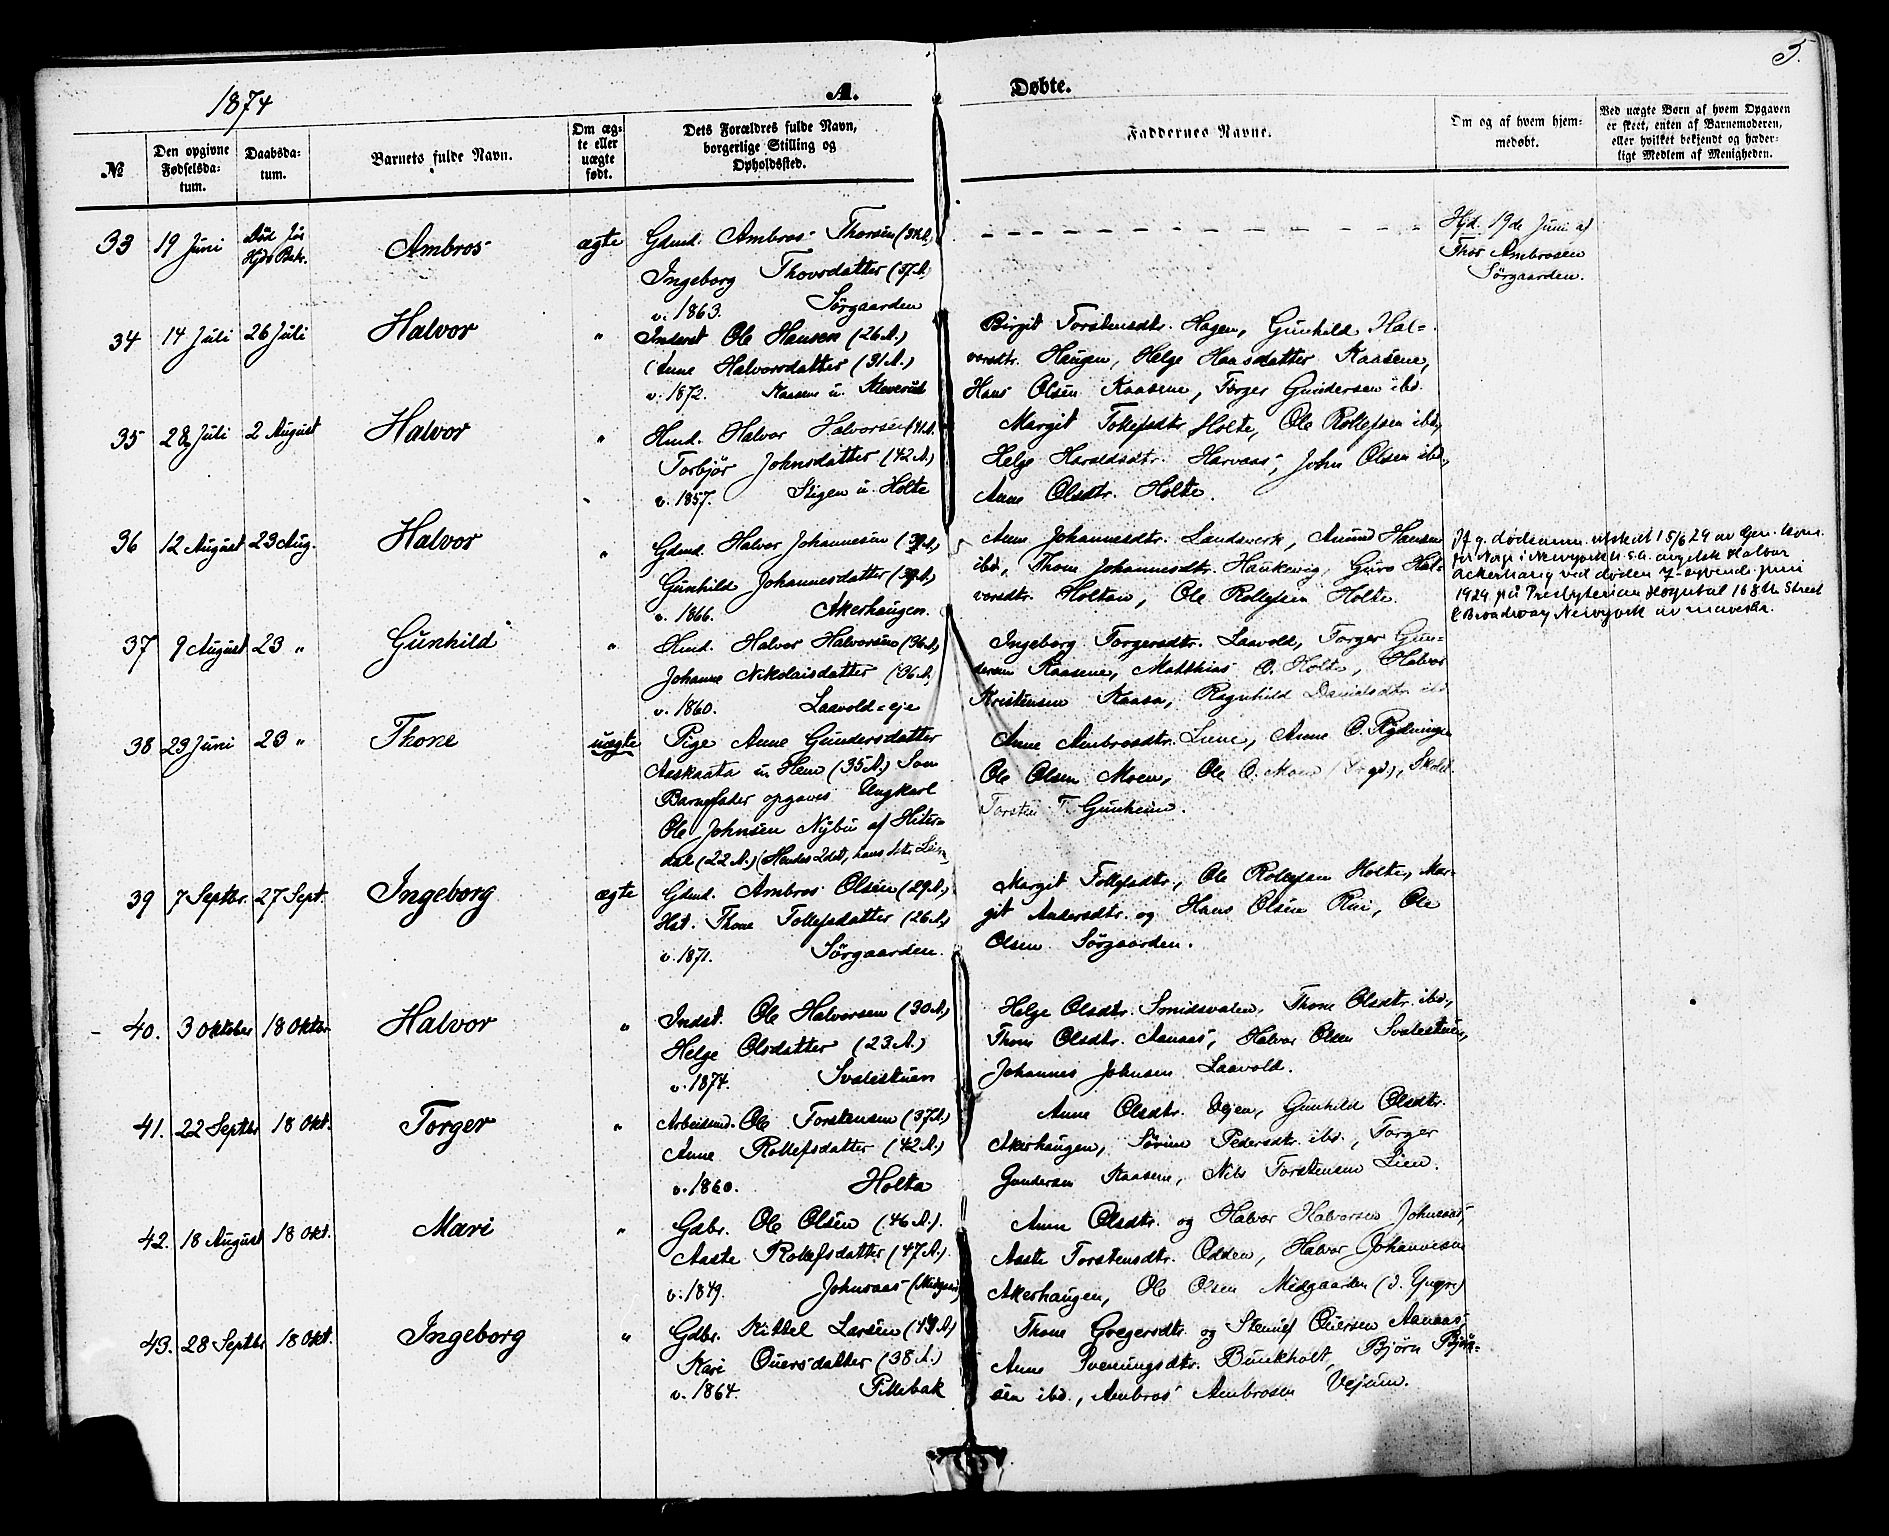 5.
1874
A.
Døbte.
№
Den opgivne Fødselsdatum.
Daabsdatum.
Barnets fulde Navn.
Om ægte eller uægte født.
Dets Forældres fulde Navn, borgerlige Stilling og Opholdssted.
Faddernes Navne.
Om og af hvem hjemmedøbt.
Ved uægte Børn af hvem Opgaven er skeet, enten af Barnemoderen, eller hvilket bekjendt og hæderligt Medlem af Menigheden.
33 19 Juni Død Ambros ægte Gdmd. Ambros Thorsen
Ingeborg Thovsdatter (37 A.)
v. 1863. Sørgaarden
Hjd. 19de Juni af
Thor Ambrosen
Sørgaarden.
34 14 Juli 26 Juli Halvor " Inderst Ole Hansen (26 A.)
Anne Halvorsdatter (31 A.)
v. 1872. Kaasene u.
Birgit Torstensdtr. Hagen, Gunhild Hal-
vorsdtr. Haugen, Helge Hansdatter Kaasene,
Hans Olsen Kaasene, Torger Gundersen ibd.
35 28 Juli 2 August Halvor " Hmd. Halvor Halvorsen (41 A.
Torbjør Johnsdatter (42 A.)
v. 1857. Stigen u. Holte
Margit Tollefsdtr. Holte, Ole Rollefsen ibd,
Helge Haraldsdtr. Harvaas, John Olsen ibd,
Anne Olsdtr. Holte.
36 12 August 23 Aug. Halvor " Gdmd. Halvor Johannesen
Gunhild Johannesdatter
v. 1866. Akerhaugen.
Anne Johannesdtr. Landsverk, Amund Hansen
ibd, Thone Johannesdtr. Haukevig, Guro Hal-
vorsdtr. Holtan, Ole Rollefsen Holte.
If. g. dødsanm. utstedt 15/6 29 av Gen. kons.
for Norge i Newyork U.S.A. avgikk Halvor
Ackerhaug ved døden 7-syvende juni
1929 på Presbyterian Hospital 168th Street
& Broadway Newyork
37 9 August 23 " Gunhild " Hmd. Halvor Halvorsen (36 A.)
Johanne Nikolaisdatter (36 A.)
v. 1860. Laavold-eje
Ingeborg Torgersdtr. Laavold, Torger Gun-
dersen Kaasene, Matthias O. Holte, Halvor
Kristensen Kaasa, Ragnhild Danielsdtr. ibd
38 23 Juni 23 " Thone uægte Pige Anne Gundersdatter
Aaskaata u. Hem (35 A.) Som
Barnefader opgaves Ungkarl
Ole Johnsen Nybu af Hiter-
dal (22 A.) (Hendes 2det, hans
Anne Ambrosdtr. Liene, Anne O. Rydningen
Ole Olsen Moen, Ole O. Moen
Torsten T. Gunheim.
39 7 Septbr. 27 Sept. Ingeborg ægte Gdmd. Ambros Olsen (29 A.)
Hst. Thone Tollefsdatter (26 A.)
v. 1871. Sørgaarden.
Margit Tollefsdtr., Ole Rollefsen Holte, Mar-
git Andersdtr. og Hans Olsen Rui, Ole
Olsen Sørgaarden.
40. 3 Oktober 18 Oktbr. Halvor " Indst. Ole Halvorsen (30 A.)
Helge Olsdatter (23 A.)
v. 1874. Svalestuen
Helge Olsdtr. Smidsvalen, Thone Olsdtr. ibd,
Thone Olsdtr. Aanaas, Halvor Olsen Svalestuen,
Johannes Johnsen Laavold.
41. 22 Septbr 18 Okt. Torger " Arbeidsmd. Ole Torstensen (37 A.)
Anne Rollefsdatter (42 A.)
v. 1860. Holta
Anne Olsdtr. Vejen, Gunhild Olsdtr.
Akerhaugen, Sørine Pedersdtr. ibd., Torger
Gundersen Kaasene, Nils Torstensen Lien.
42. 18 August 18 Okt. Mari " Gdbr. Ole Olsen (46 A.).
Aaste Rollefsdatter (47 A.)
v. 1849. Johnsaas
Anne Olsdtr. og Halvor Halvorsen Johnsaas,
Aaste Torstensdtr. Odden, Halvor Johannesen
Akerhaugen, Ole Olsen Midgaarden (d. Yngre)
43. 28 Septbr 18 Okt. Ingeborg " Gdbr. Kittel Larsen
Kari Ouersdatter (38 A.)
v. 1864. Pillebak
Thone Gregersdtr. og Stenulf Ouersen Aanaas,
Anne Svenungsdtr. Bunkholt, Bjørn Bjørn-
sen ibd., Ambros Ambrosen Vejum.